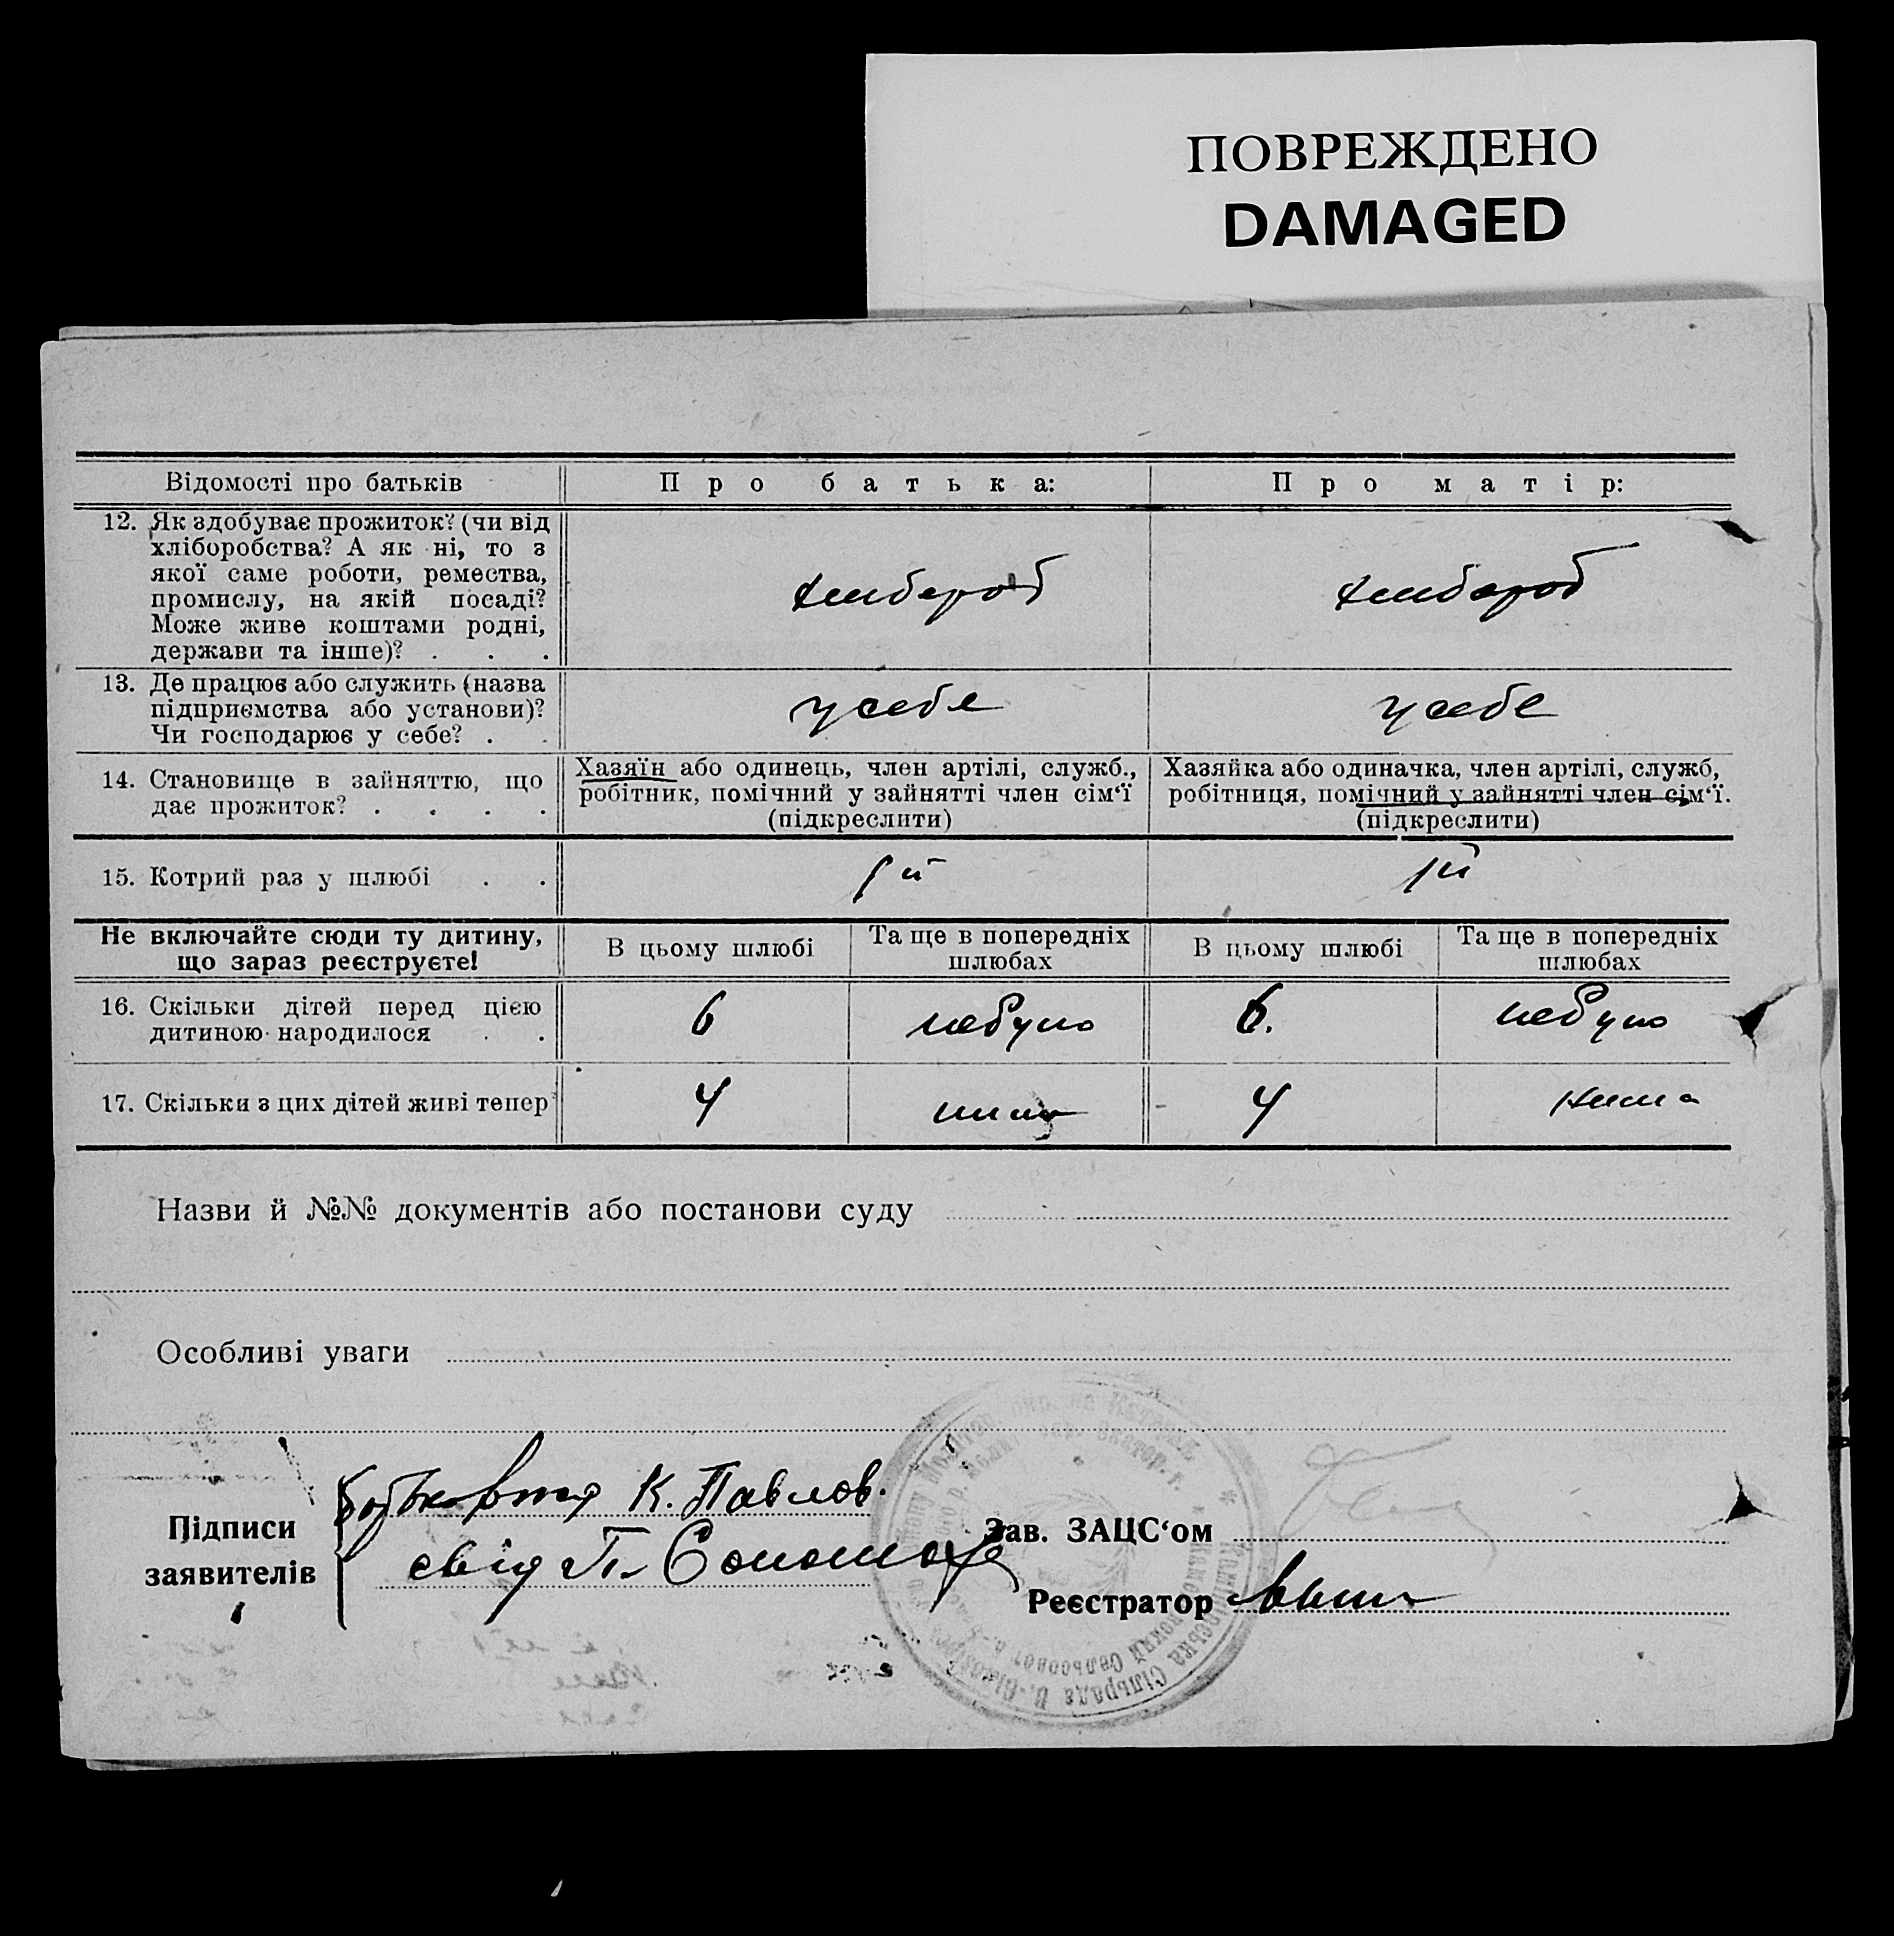 ПОВРЕЖДЕНО
DAMAGED
Відомості про батьків
Про батька:
Про матір:
12. Як здобуває прожиток? (чи від
хліборобства? А як ні, то з
якої саме роботи, ремества,
промислу, на якій посаді?
Може живе коштами родні,
держави та інше)? . . .
хлібороб
хлібороб
13. Де працює або служить (назва
підприємства або установи)?
Чи господарює у себе? . .
у себе
у себе
14. Становище в зайняттю, що
дає прожиток? . . . .
Хазяїн або одинець, член артілі, служб.,
робітник, помічний у зайнятті член сім‘ї
(підкреслити)
Хазяйка або одиначка, член артілі, служб,
робітниця, помічний у зайнятті член сім‘ї.
(підкреслити)
15. Котрий раз у шлюбі . .
1й
1й
Не включайте сюди ту дитину,
що зараз реєструєте!
В цьому шлюбі
Та ще в попередніх
шлюбах
В цьому шлюбі
Та ще в попередніх
шлюбах
16. Скільки дітей перед цією
дитиною народилося . .
6
небуло
6.
небуло
17. Скільки з цих дітей живі тепер
4
нима
4
нима
Назви й №№ документів або постанови суду
Особливі уваги
Підписи
заявителів
К. Павлов.
свід П.
Зав. ЗАЦС‘ом
Реєстратор